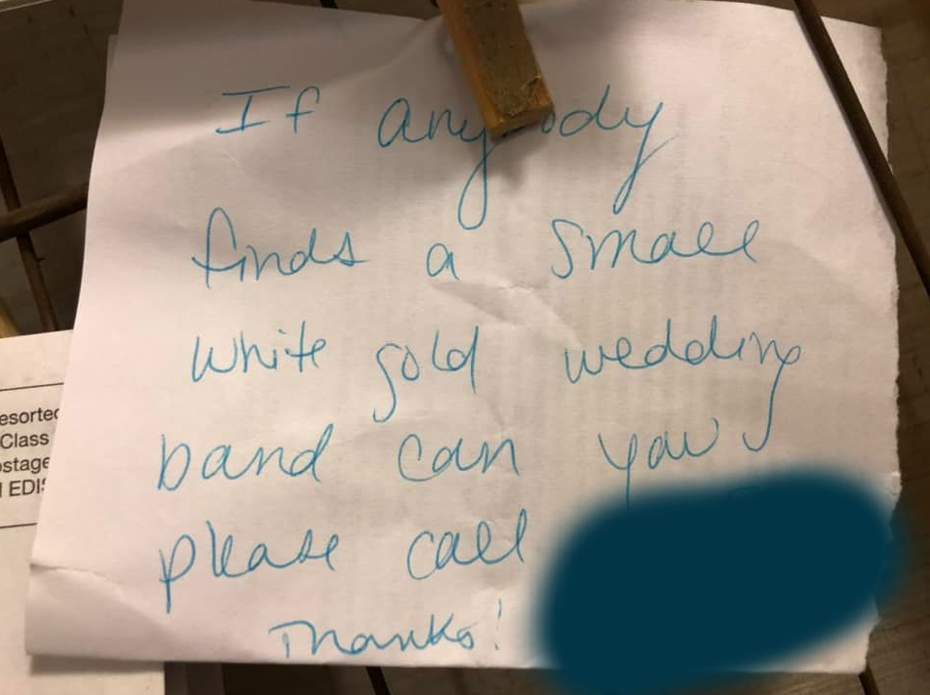 If anybody
finds a small
white gold wedding
band can you
please call
Thanks!
esorted
Class
ostage
EDI